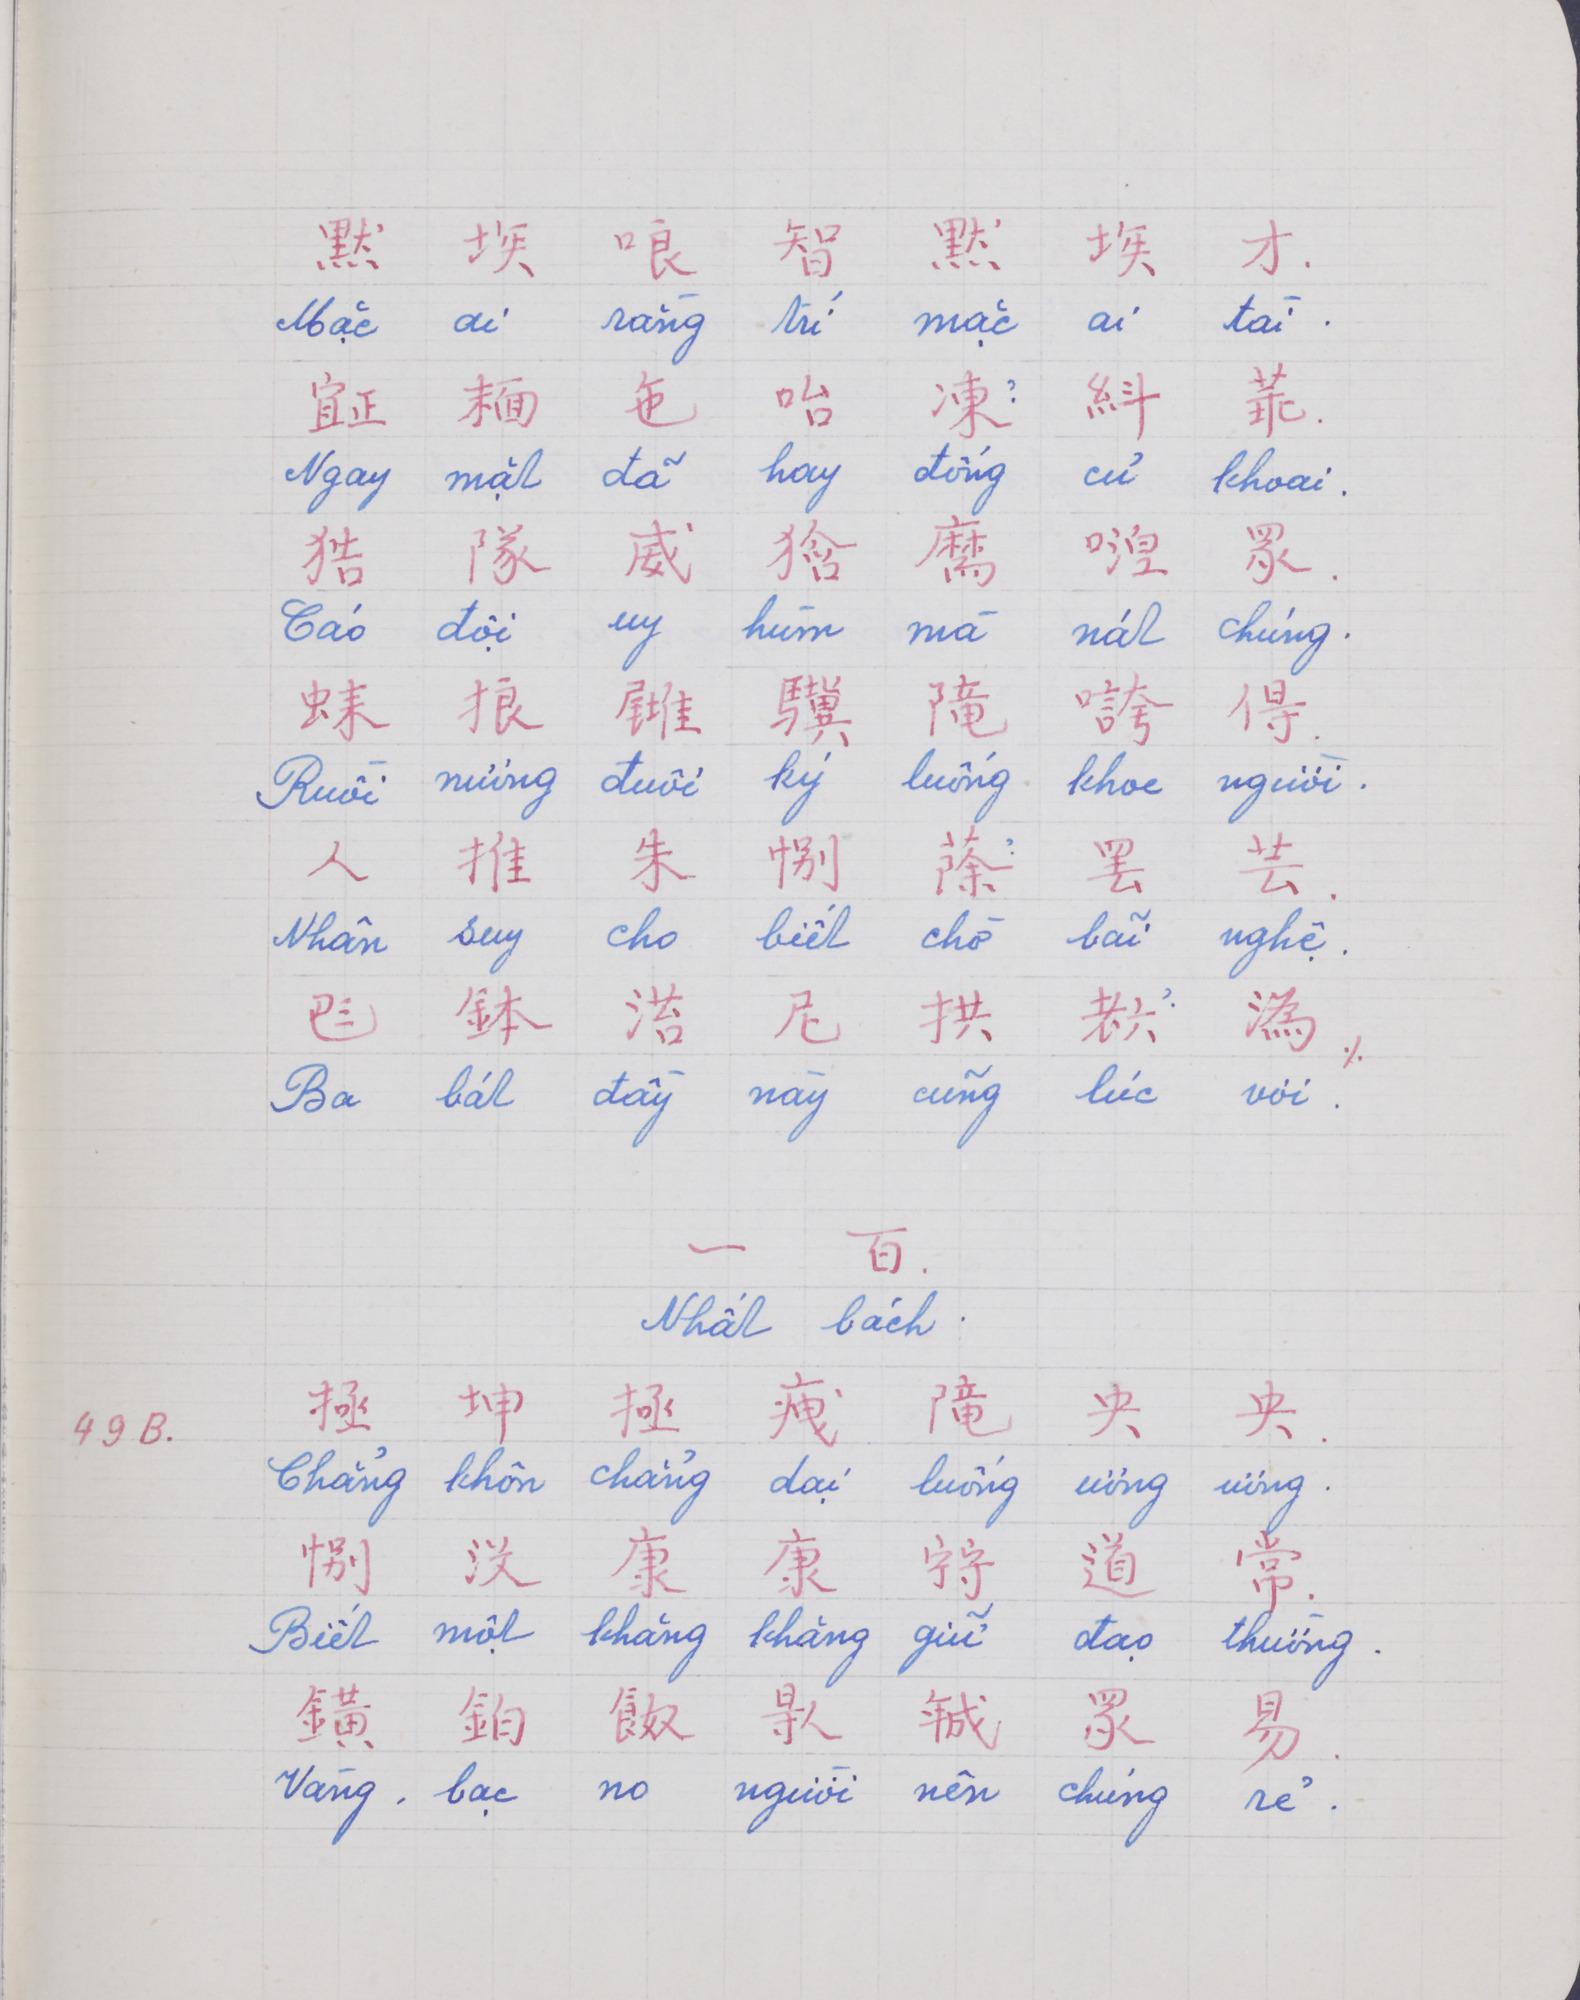 默 埃 哴 智 默 埃 才.
Mặc ai rằng trí mặc ai tài.
𣦍 𩈘 㐌 咍 凍 糾 乖.
Ngay mặt đã hay đống củ khoai.
狤 隊 威 㺃 麿 𠴓 眾.
Cáo đội uy hùm mà nát chúng.
蛛 𢭗 𡳪 驥 隴 誇 㝵.
Ruồi nương đuôi ký luống khoe người.
人 推 朱 別 蒢 罢 芸.
Nhân suy cho biết chờ bãi nghệ.
𠀧 鉢 湇 尼 拱 𦒹 溈 ٪
Ba bát đầy này cũng lúc vơi.
一 百.
Nhất bách.
49B.
拯 坤 拯 𤵺 隴 央 央.
Chẳng khôn chẳng dại luống ương ương.
別 沒 康 康 𡨺 道 常.
Biết một khăng khăng giữ đạo thường.
鐄 鉑 𩛂 㝵 𢧚 眾 易.
Vàng, bạc no người nên chúng rẻ.